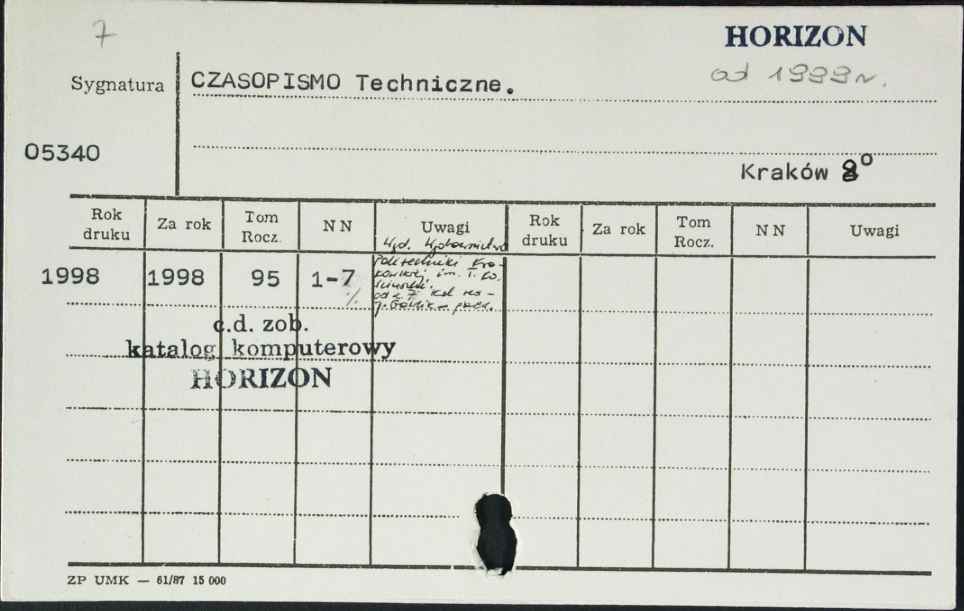 7
HORIZON
od 1999 r.
Sygnatura
CZASOPISMO Techniczne.
05340
Kraków 8°
Rok druku Za rok Tom Rocz. NN Uwagi Rok druku Za rok Tom Rocz. NN Uwagi
Wyd. Wydawnictwo
1998 1998 95 1-7
Politechniki Kra-
kowskiej im. T. Ko-
ściuszki.
od z. 7
c.d. zob.
katalog komputerowy
HORIZON
ZP UMK — 61/87 15 000